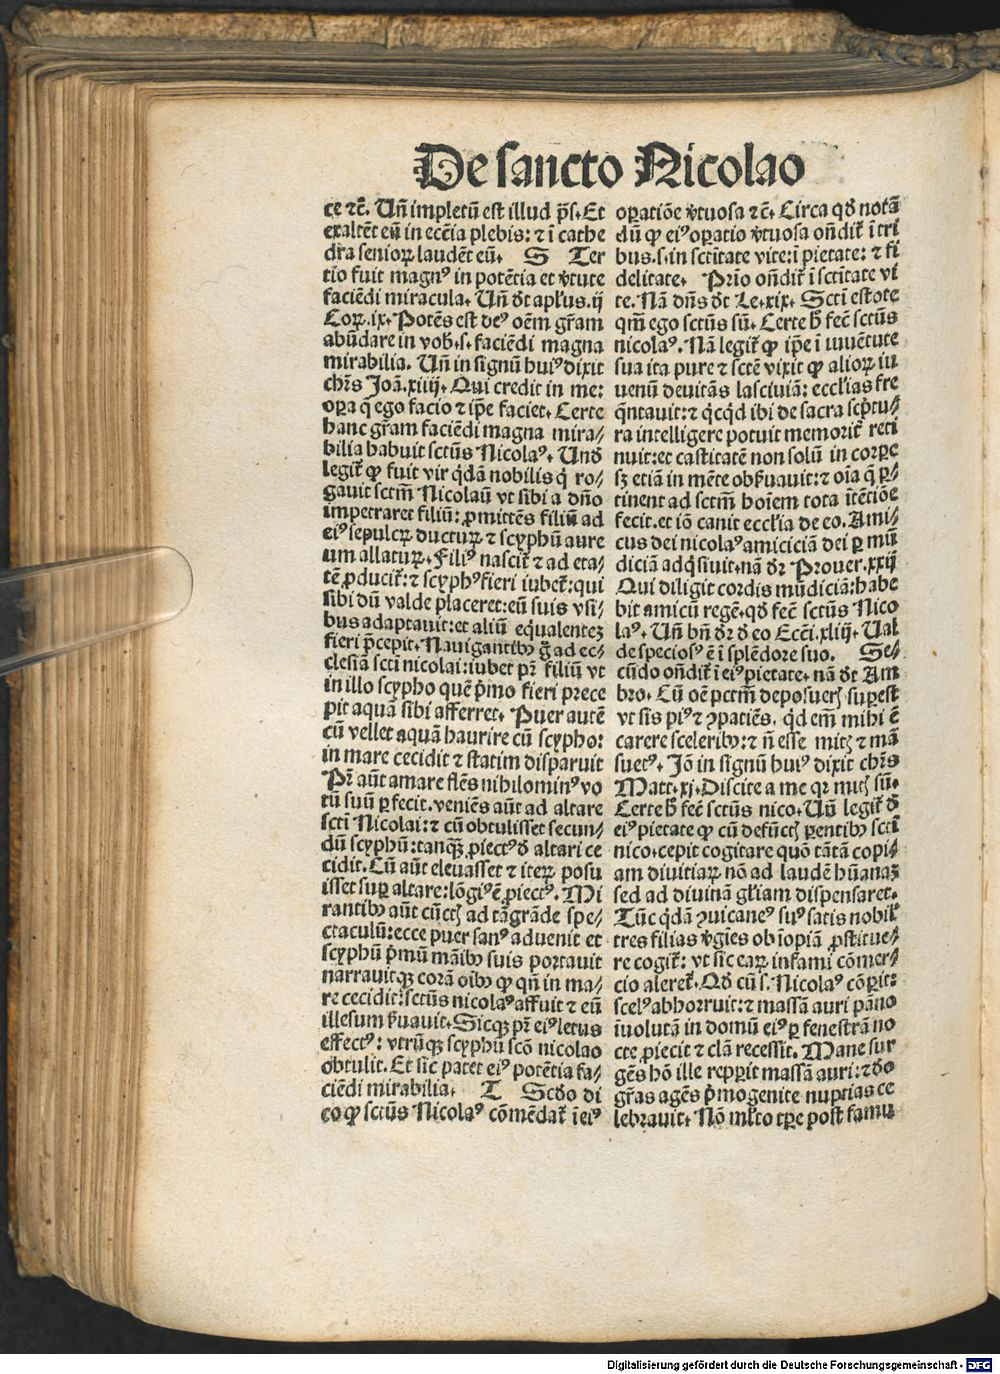 De sancto Nicolao
ce ⁊c̃. Vñ impletũ est illud p̃s. Et
exaltẽt eũ in ecc̃ia plebis: ⁊ ĩ cathe
dr̃a senioꝝ laudẽt eũ. S Ter
tio fuit magnꝰ in potẽtia et v̓tute
faciẽdi miracula. Vñ dt̃ apl̓us .ij
Coꝝ .ix. Potẽs est deꝰ oẽm gr̃am
abũdare in vob̃ .s. faciẽdi magna
mirabilia. Vñ in signũ huiꝰ dixit
chr̃s Joã .xiiij. Qui credit in me:
oꝑa q̃ ego facio ⁊ ip̃e faciet. Certe
hanc gr̃am faciẽdi magna mira/
bilia habuit sct̃us Nicolaꝰ. Vnđ
legit̃ ꝙ fuit vir q̓dã nobilis q̓ ro/
gauit sct̃m Nicolaũ vt sibi a dño
impetraret filiũ: ꝓmittẽs filiũ ad
eiꝰ sepulcꝝ ductuꝝ ⁊ scyphũ aure
um allatuꝝ. Filiꝰ nascit̃ ⁊ ad eta/
tẽ ꝓducit̃: ⁊ scyphꝰ fieri iubet̃: qui
sibi dũ valde placeret: eũ suis vsi/
bus adaptauit: et aliũ equalentez
fieri p̃cepit. Nauigantibꝰ g̃ ad ec/
clesiã scti nicolai: iubet pr̃ filiũ vt
in illo scypho quẽ p̓mo fieri prece
pit aquã sibi afferret. Puer autẽ
cũ vellet aquã haurire cũ scypho:
in mare cecidit ⁊ statim disparuit
Pr̃ aũt amare flẽs nihilominꝰ vo
tũ suũ ꝑfecit. veniẽs aũt ad altare
sctĩ Nicolai: ⁊ cũ obtulisset secun/
dũ scyphũ: tanqꝫ ꝓiectꝰ đ altari ce
cidit. Cũ aũt eleuasset ⁊ iteꝝ posu
isset suꝑ altare: lõgiꝰ ẽ ꝓiectꝰ. Mi
rantibꝰ aũt cũctꝭ ad tã grãde spe/
ctaculũ: ecce puer sanꝰ aduenit et
scyphũ p̓mũ mãibꝰ suis portauit
narrauitqꝫ corã oĩbꝰ ꝙ qñ in ma/
re cecidit: sct̃us nicolaꝰ affuit ⁊ eũ
illesum ẜuauit. Sicqꝫ pr̃ eiꝰ letus
effectꝰ: vtrũqꝫ scyphũ scõ nicolao
obtulit. Et sic patet eiꝰ potẽtia fa/
ciẽdi mirabilia. T Scđo di
co ꝙ sct̃us Nicolaꝰ cõmẽdat̃ ĩ eiꝰ
oꝑatiõe v̓tuosa ⁊c̃. Circa qđ notã
dũ ꝙ eiꝰ oꝑatio v̓tuosa oñdit̃ ĩ tri
bus .s. in sctĩtate vite: ĩ pietate: ⁊ fi
delitate. Prĩo oñdit̃ ĩ sctĩtate vi
te. Nã dñs dt̃ Le .xix. Sctĩ estote
qm̃ ego sct̃us sũ. Certe h̃ fec̃ sct̃us
nicolaꝰ. Nã legit̃ ꝙ ip̃e ĩ iuuẽtute
sua ita pure ⁊ sctẽ vixit ꝙ alioꝝ iu
uenũ deuitãs lasciuiã: eccl̓ias fre
q̃ntauit: ⁊ q̓cq̓d ibi de sacra sc̓ptu/
ra intelligere potuit memorit̃ reti
nuit: et castitatẽ non solũ in corpe
sꝫ etiã in mẽte obẜuauit: ⁊ oĩa q̃ ꝑ/
tinent ad sctm̃ hoĩem tota ĩtẽtiõe
fecit. et iõ canit eccl̓ia de eo. Ami/
cus dei nicolaꝰ amiciciã dei ꝑ mũ
diciã adq̓siuit. nã dr̃ Prouer .xxij
Qui diligit cordis mũdiciã: habe
bit amicũ regẽ. qđ fec̃ sct̃us Nico
laꝰ. Vñ bñ dr̃ đ eo Ecc̃i .xliij. Val
de speciosꝰ ẽ ĩ splẽdore suo. Se/
cũdo oñdit̃ ĩ eiꝰ pietate. nã dt̃ Am
bro. Cũ oẽ pctm̃ deposuerꝭ suꝑest
vt sis piꝰ ⁊ ꝯpatiẽs. q̓d em̃ mihi ẽ
carere sceleribꝰ: ⁊ ñ esse mitꝭ ⁊ mã
suetꝰ. Jõ in signũ huiꝰ dixit chr̃s
Matt .xj. Discite a me qꝛ mitꝭ sũ.
Certe h̃ fec̃ sct̃us nico. Vñ legit̃ đ
eiꝰ pietate ꝙ cũ defũctꝭ ꝑentibꝰ sctĩ
nico. cepit cogitare quõ tãtã copi/
am diuitiaꝝ nõ ad laudẽ hũanaꝫ
sed ad diuinã gl̓iam dispensaret.
Tũc q̓dã ꝯuicaneꝰ suꝰ satis nobil̓
tres filias v̓gĩes ob ĩopiã ꝓstitue/
re cogit̃: vt sic eaꝝ infami cõmer/
cio aleret̃. Qđ cũ s. Nicolaꝰ cõꝑit:
scelꝰ abhorruit: ⁊ massã auri pãno
ĩuolutã in domũ eiꝰ ꝑ fenestrã no
cte ꝓiecit ⁊ clã recessit. Mane sur
gẽs hõ ille repꝑit massã auri: ⁊ deo
gr̃as agẽs p̓mogenite nuptias ce
lebrauit. Nõ ml̓to tꝑe post famu
Digitalisierung gefördert durch die Deutsche Forschungsgemeinschaft - DFG